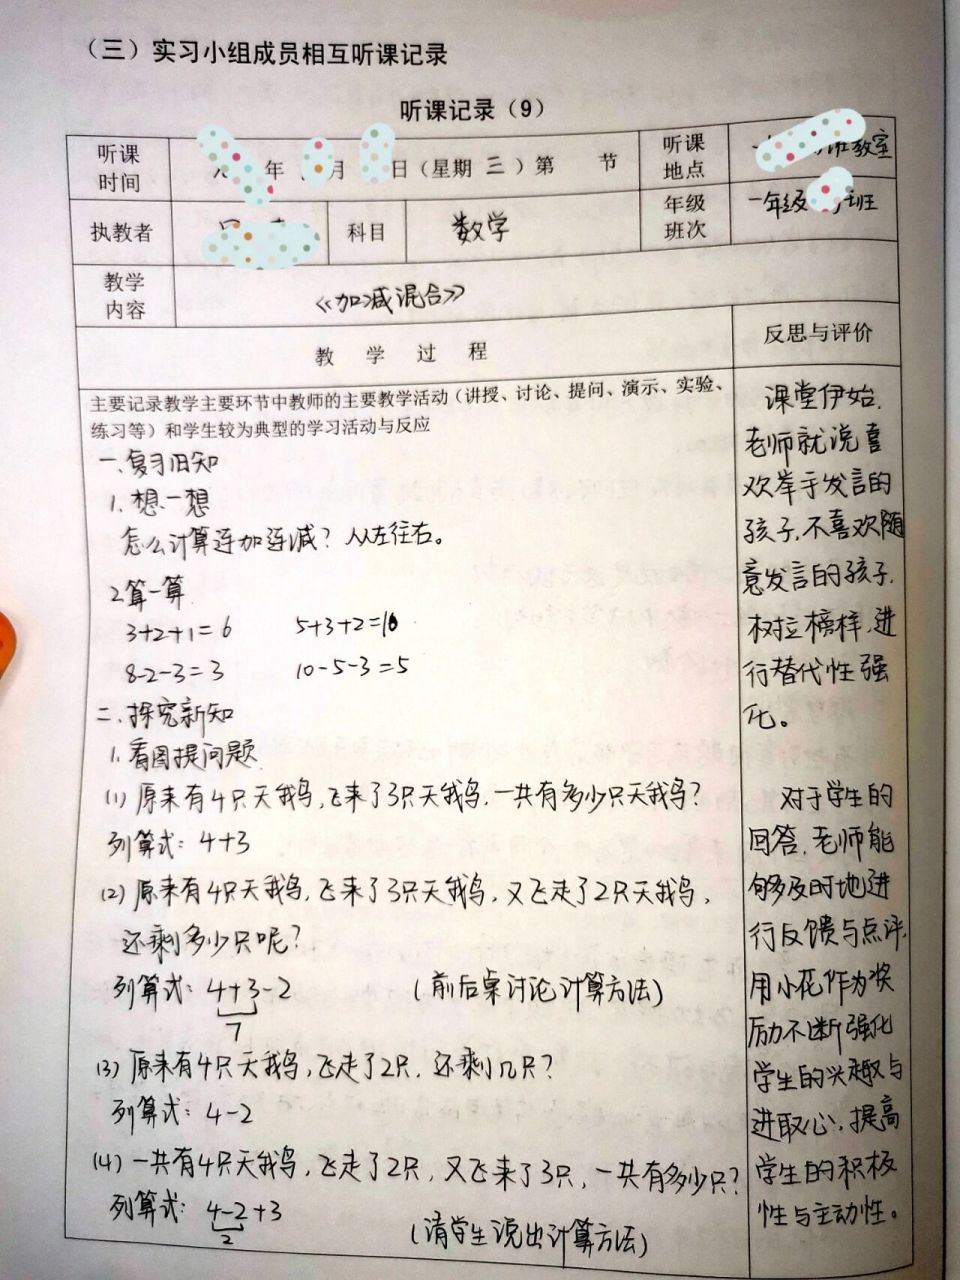 （三）实习小组成员相互听课记录
听课记录（9）
听课时间 年 月 日（星期 三）第 节 听课地点 教室
执教者 科目 数学 年级班次 一年级 班
教学内容 《加减混合》
教 学 过 程 反思与评价
主要记录教学主要环节中教师的主要教学活动（讲授、讨论、提问、演示、实验、
练习等）和学生较为典型的学习活动与反应
一.复习旧知
1.想一想
怎么计算连加连减？从左往右。
2.算一算
3+2+1=6 5+3+2=10
8-2-3=3 10-5-3=5
二.探究新知
1.看图提问题
(1)原来有4只天鹅,飞来了3只天鹅,一共有多少只天鹅？
列算式: 4+3
(2)原来有4只天鹅,飞来了3只天鹅,又飞走了2只天鹅,
还剩多少只呢？
列算式: 4+3-2 (前后桌讨论计算方法)
7
(3)原来有4只天鹅,飞走了2只,还剩几只？
列算式: 4-2
(4)一共有4只天鹅,飞走了2只,又飞来了3只,一共有多少只？
列算式: 4-2+3
2 (请学生说出计算方法)
课堂伊始,
老师就说喜
欢举手发言的
孩子,不喜欢随
意发言的孩子.
树拉榜样,进
行替代性强
化。
对于学生的
回答,老师能
够及时地进
行反馈与点评,
用小花作为奖
励不断强化
学生的兴趣与
进取心,提高
学生的积极
性与主动性。